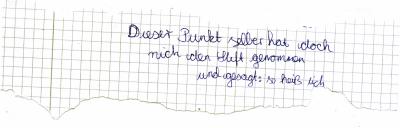 Dieser Punkt selber hat doch
mich den Stift genommen
und gesagt: so heiß ich